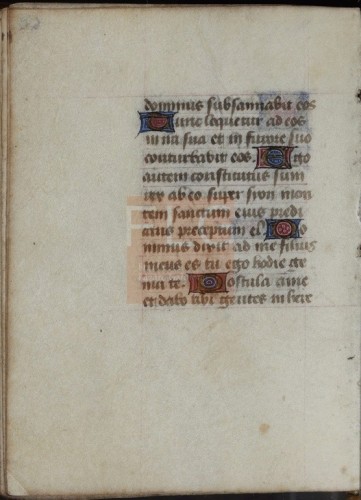 dominus subsannabit eos
Tunc loquetur ad eos
in ira sua et in furore suo
conturbabit eos. Ego
autem constitutus sum
rex ab eo super syon mon
tem sanctum eius predi
cans preceptum ei. Do
minus dixit ad me filius
meus es tu ego hodie ge
nui te. Postula a me
et dabo tibi gentes in here